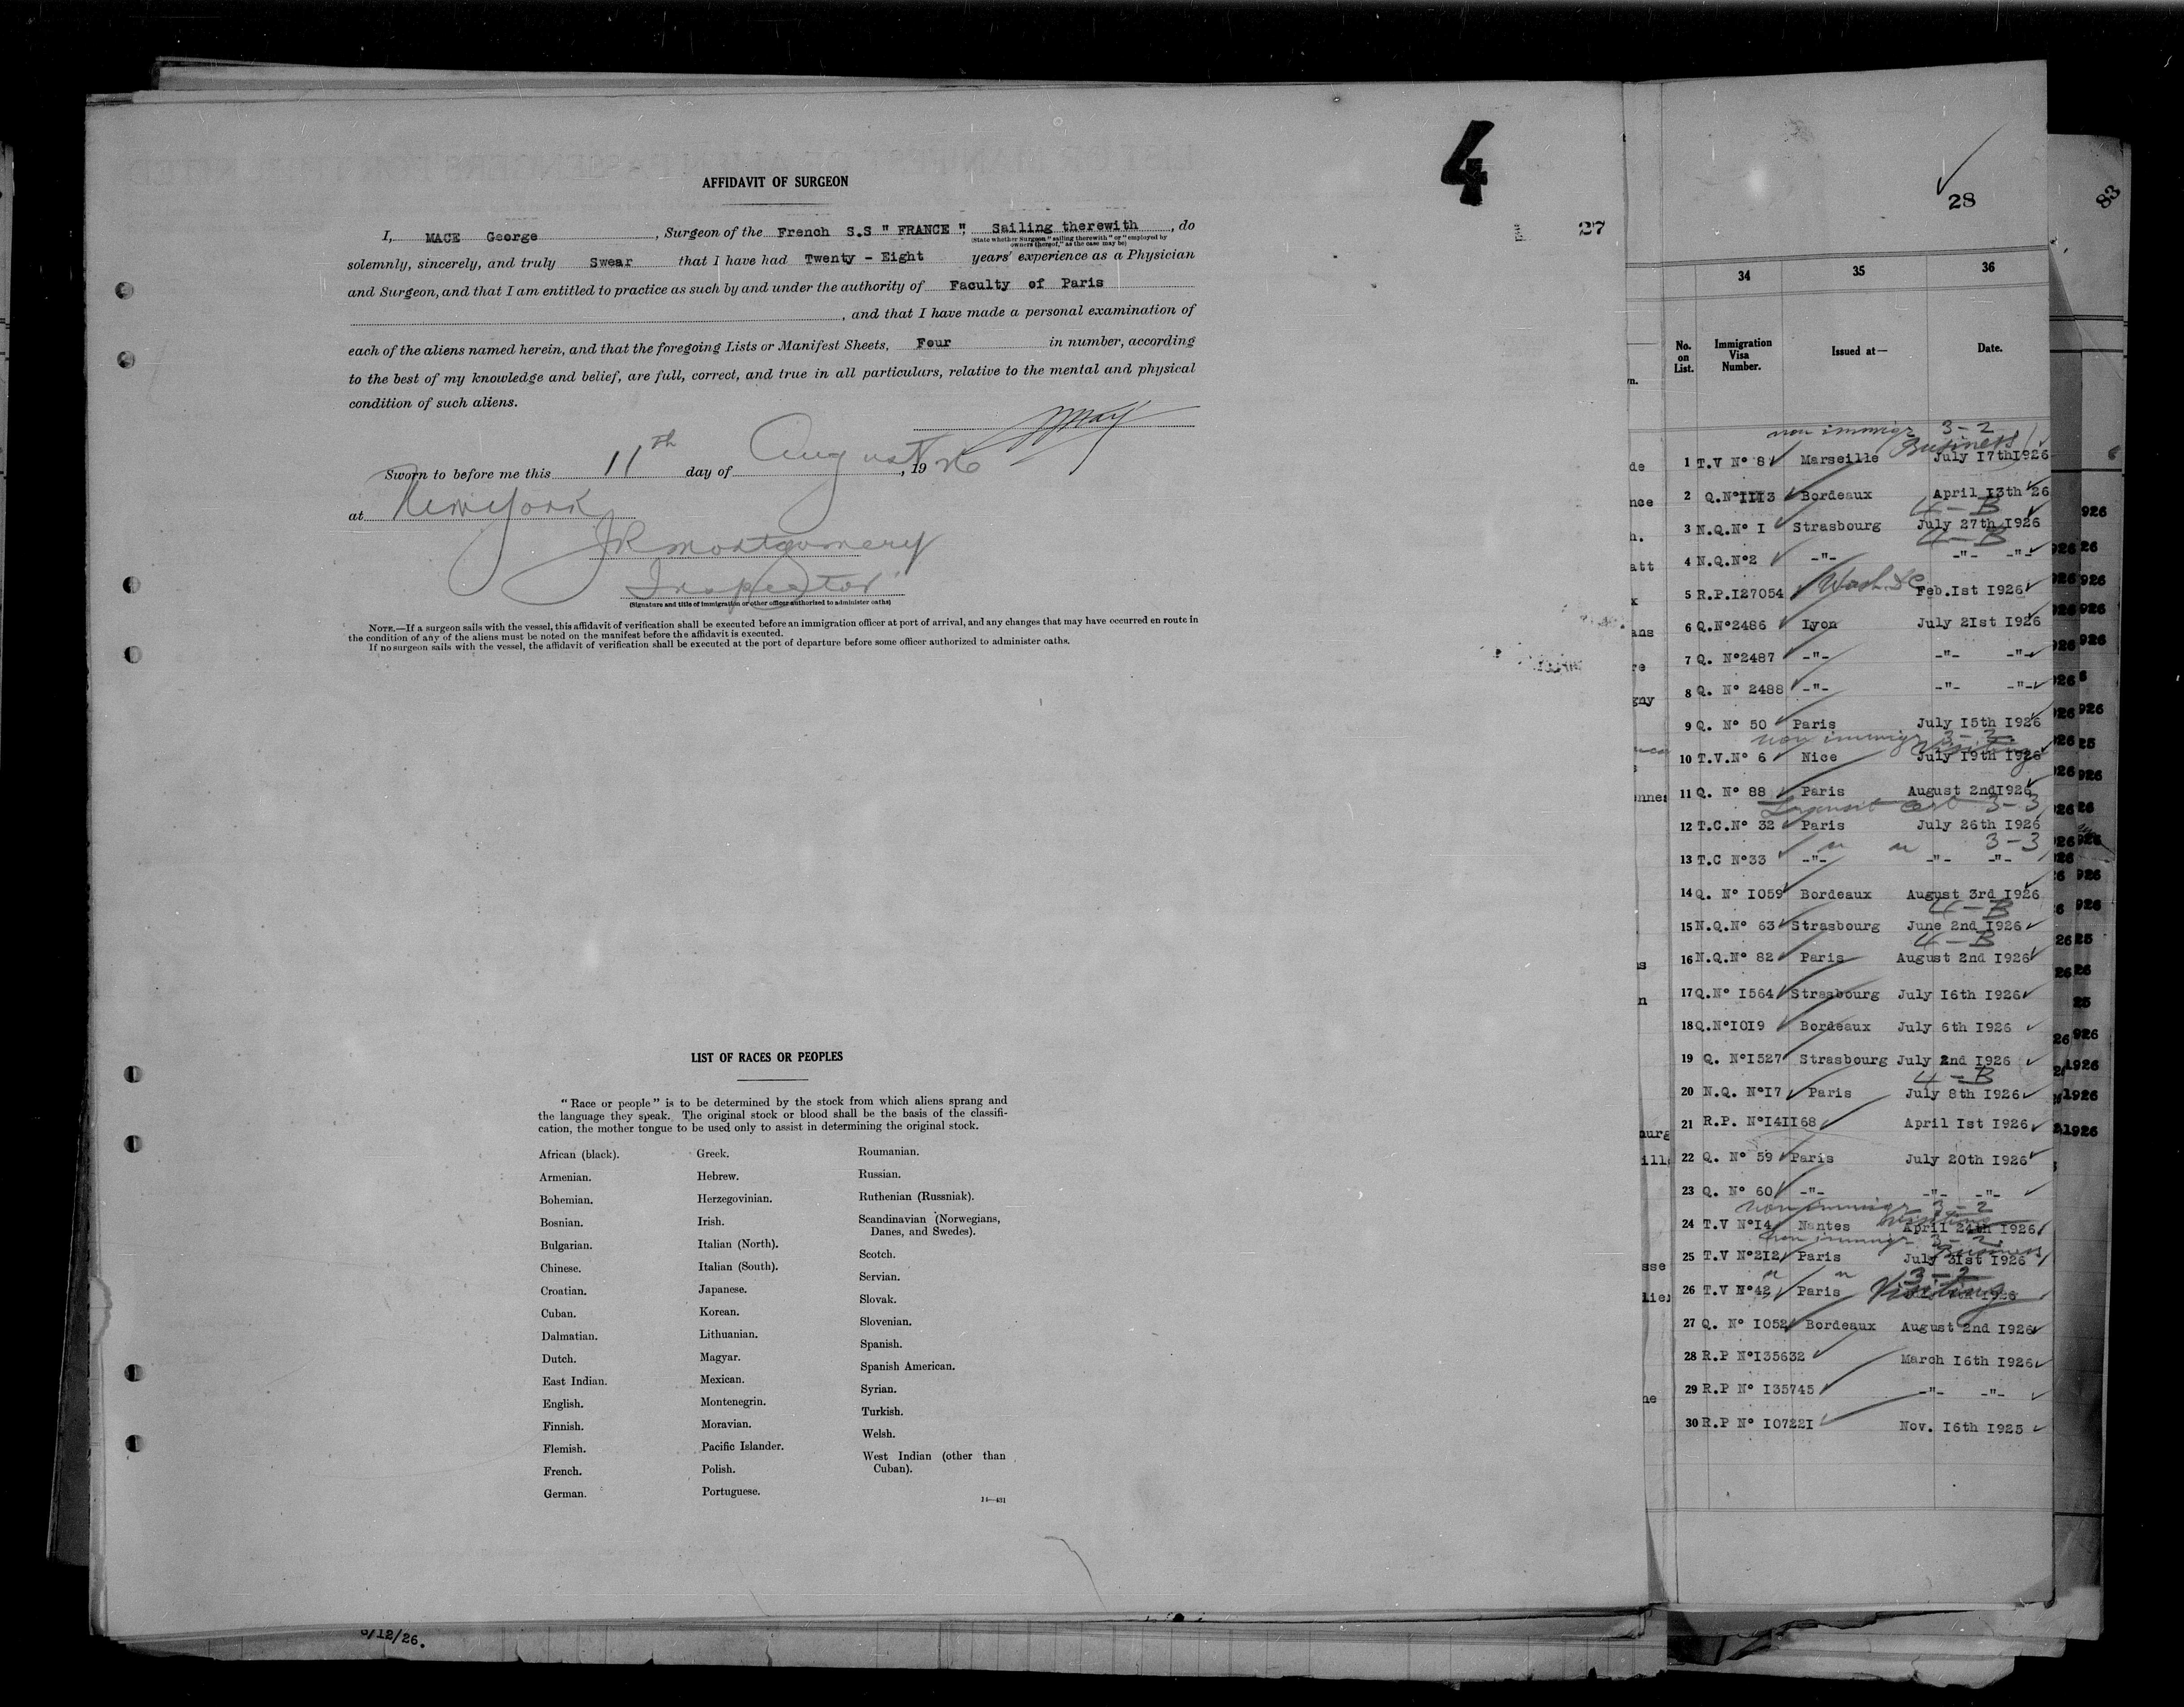 4
27
AFFIDAVIT OF SURGEON
I, MACE George, Surgeon of the French S.S " FRANCE ", Sailing therewith, do
(State whether Surgeon "sailing therewith" or "employed by
owners thereof," as the case may be)
solemnly, sincerely, and truly Swear that I have had Twenty - Eight years' experience as a Physician
and Surgeon, and that I am entitled to practice as such by and under the authority of Faculty of Paris
, and that I have made a personal examination of
each of the aliens named herein, and that the foregoing Lists or Manifest Sheets, Four in number, according
to the best of my knowledge and belief, are full, correct, and true in all particulars, relative to the mental and physical
condition of such aliens.
Sworn to before me this 11th day of August, 1926
at New York
JR Montgomery
Inspector
(Signature and title of immigration or other officer authorised to administer oaths)
NOTE.—If a surgeon sails with the vessel, this affidavit of verification shall be executed before an immigration officer at port of arrival, and any changes that may have occurred en route in
the condition of any of the aliens must be noted on the manifest before the affidavit is executed.
If no surgeon sails with the vessel, the affidavit of verification shall be executed at the port of departure before some officer authorized to administer oaths.
LIST OF RACES OR PEOPLES
"Race or people" is to be determined by the stock from which aliens sprang and
the language they speak. The original stock or blood shall be the basis of the classifi-
cation, the mother tongue to be used only to assist in determining the original stock.
African (black).
Armenian.
Bohemian.
Bosnian.
Bulgarian.
Chinese.
Croatian.
Cuban.
Dalmatian.
Dutch.
East Indian.
English.
Finnish.
Flemish.
French.
German.
Greek.
Hebrew.
Herzegovinian.
Irish.
Italian (North).
Italian (South).
Japanese.
Korean.
Lithuanian.
Magyar.
Mexican.
Montenegrin.
Moravian.
Pacific Islander.
Polish.
Portuguese.
Roumanian.
Russian.
Ruthenian (Russniak).
Scandinavian (Norwegians,
Danes, and Swedes).
Scotch.
Servian.
Slovak.
Slovenian.
Spanish.
Spanish American.
Syrian.
Turkish.
Welsh.
West Indian (other than
Cuban).
14—431
/12/26.
28
83
34 35 36
No. on List. Immigration Visa Number. Issued at— Date.
non immigr 3-2
Business
1 T.V N° 8 Marseille July 17th 1926
2 Q.N°III3 Bordeaux April 13th 26
4-B
3 N.Q.N° I Strasbourg July 27th 1926
4-B
4 N.Q.N°2 -"- -"- -"-
5 R.P.I27054 Wash. DC Feb.1st 1926
6 Q.N°2486 Lyon July 2Ist 1926
7 Q. N°2487 -"- -"- -"-
8 Q. N° 2488 -"- -"- -"-
9 Q. N° 50 Paris July 15th 1926
non immigr 3-2
Visiting
10 T.V.N° 6 Nice July 19th 1926
11 Q. N° 88 Paris August 2nd 1926
Transit Cert 3-3
12 T.C.N° 32 Paris July 26th 1926
" " 3-3
13 T.C N°33 -"- -"- -"-
14 Q. N° I059 Bordeaux August 3rd 1926
4-B
15 N.Q.N° 63 Strasbourg June 2nd 1926
4-B
16 N.Q.N° 82 Paris August 2nd 1926
17 Q.N° I564 Strasbourg July 16th 1926
18 Q.N°IOI9 Bordeaux July 6th 1926
19 Q. N°I527 Strasbourg July 2nd 1926
4-B
20 N.Q. N°I7 Paris July 8th 1926
21 R.P. N°I4II68 April 1st 1926
22 Q. N° 59 Paris July 20th 1926
23 Q. N° 60 -"- -"- -"-
non immigr 3-2
Visiting
24 T.V N°I4 Nantes April 24th 1926
non immigr 3-2
Business
25 T.V N°2I2 Paris July 3Ist 1926
" " 3-2
26 T.V N°42 Paris Visiting
27 Q. N° I052 Bordeaux August 2nd 1926
28 R.P N°I35632 March 16th 1926
29 R.P N° I35745 -"- -"-
30 R.P N° I0722I Nov. 16th 1925